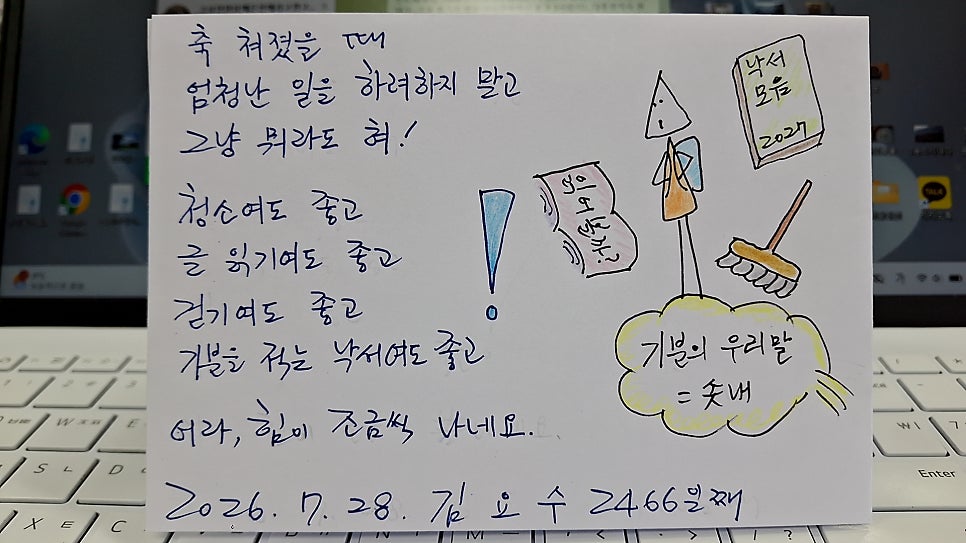 축 쳐졌을 때
엄청난 일을 하려하지 말고
그냥 뭐라도 혀!
청소여도 좋고
글 읽기여도 좋고
걷기여도 좋고
기분을 적는 낙서여도 좋고
어라, 힘이 조금씩 나네요.
2026. 7. 28. 김 요 수 2466일째
낙서
모음
2027
기분의 우리말
= 숯내
Enter